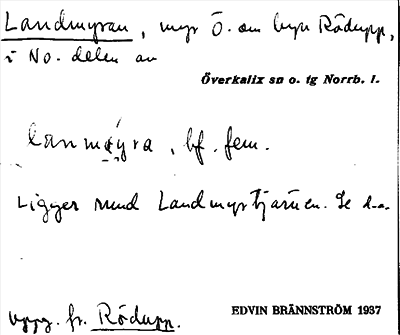 Landmyran, myr Ö. om byn Rödupp,
i No. delen av
Överkalix sn o. tg Norrb. l.
lanmøyra, bf. fem.
Ligger rund Landmyrtjärnen. Se d.o.
uppg. fr. Rödupp.
EDVIN BRÄNNSTRÖM 1937